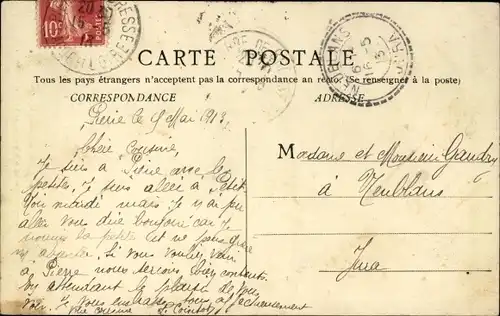 10c
CARTE POSTALE
Tous les pays étrangers n'acceptent pas la correspondance au recto (Se renseigner à la poste)
CORRESPONDANCE
ADRESSE
Pierre le 5 Mai 1913
Chère Cousine,
Je suis à Pierre avec le
petites, je suis allée à Petit
Noir mardi mais je n'ai pu
aller vous dire bonjour car je
nourris la petite et ne peux
m'absenter. Si vous voulez venir
à Pierre nous serons bien contents
en attendant le plaisir de vous
voir. Je vous embrasse tous affectueusement
votre cousine
Madame et Monsieur Gaudry
à Neublans
Jura